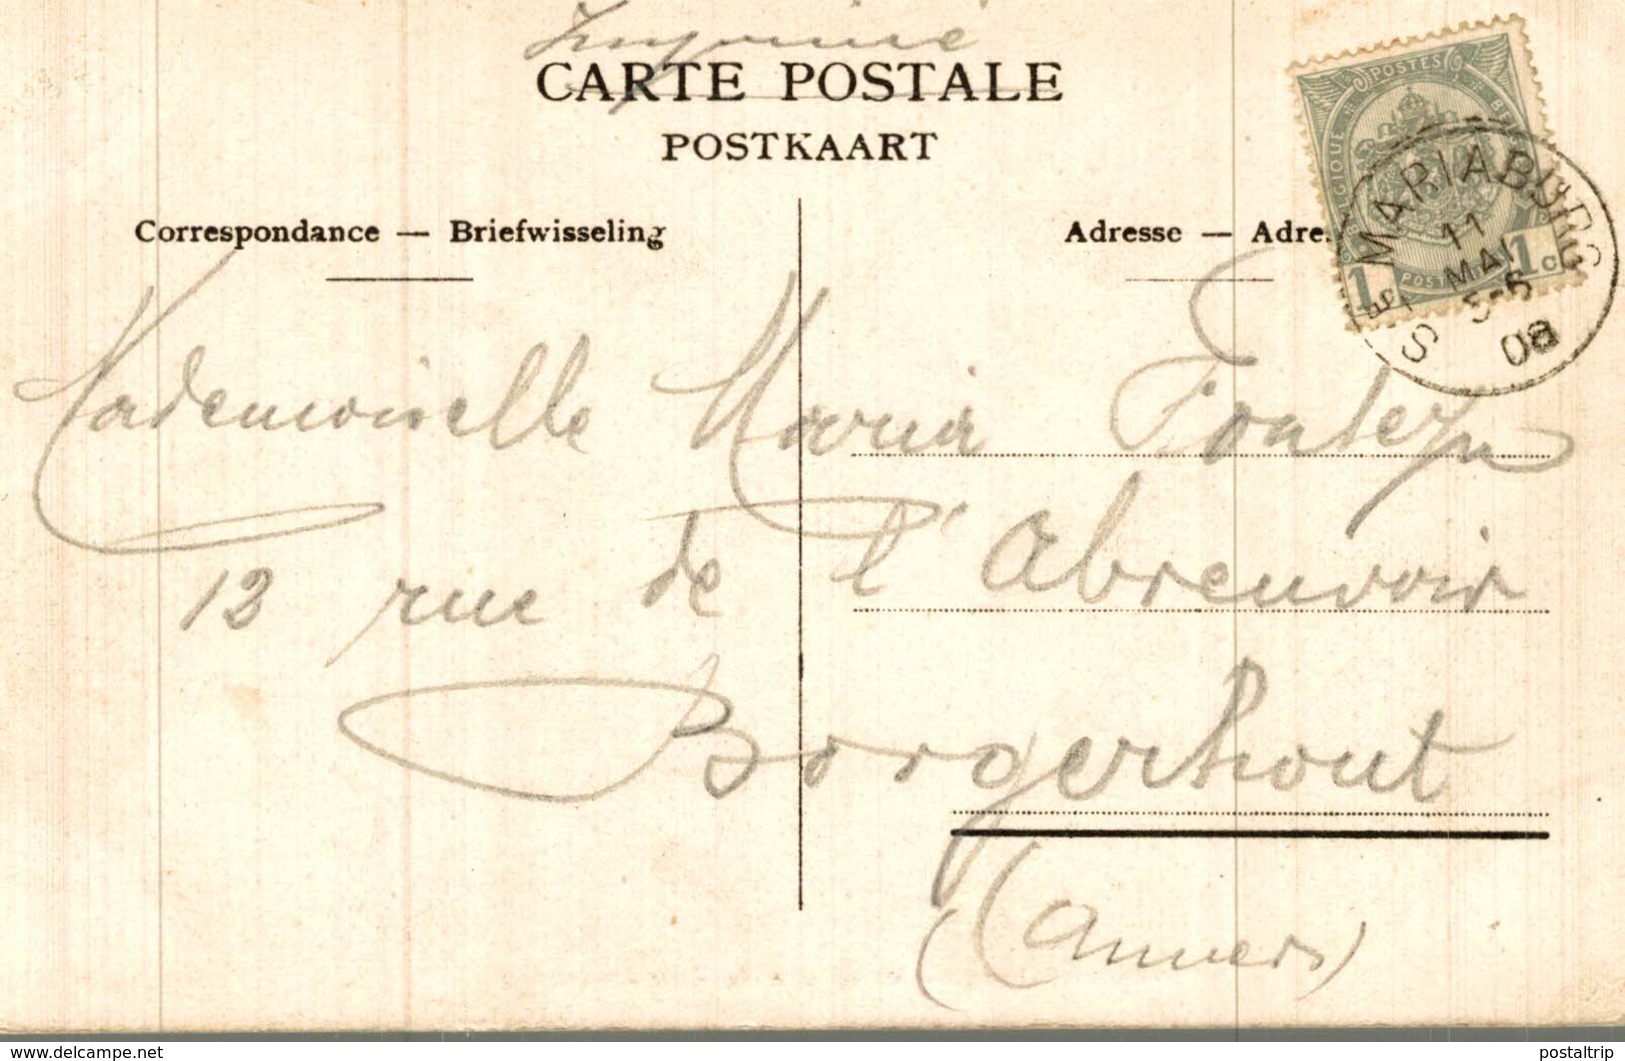 Imprimé
CARTE POSTALE
POSTKAART
Correspondance — Briefwisseling
Adresse — Adre
POSTES
BELGIQUE
1 POST 1c
Ste MARIABURG S
11 MAI
5-6
08
Mademoiselle Maria Fonteyn
12 rue de l'Abreuvoir
Borgerhout
(Anvers)
www.delcampe.net
postaltrip